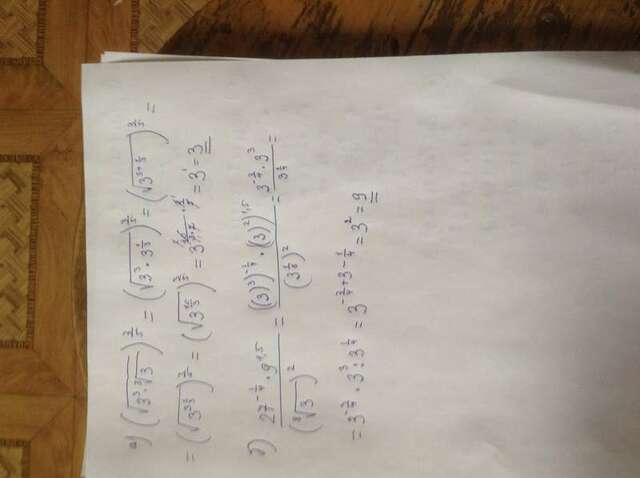 а) (√(3³·∛3))^(3/5) = (√(3³·3^(1/3)))^(3/5) = (√(3^(3+1/3)))^(3/5) =
= (√(3^(3 1/3)))^(3/5) = (√(3^(10/3)))^(3/5) = 3^(10/(3·2)·3/5) = 3¹ = 3
б) (27^(-1/4)·9^(1,5))/((⁸√3)²) = (((3)³)^(-1/4)·((3)²)^(1,5))/((3^(1/8))²) = (3^(-3/4)·3³)/(3^(1/4)) =
= 3^(-3/4)·3³:3^(1/4) = 3^(-3/4+3-1/4) = 3² = 9